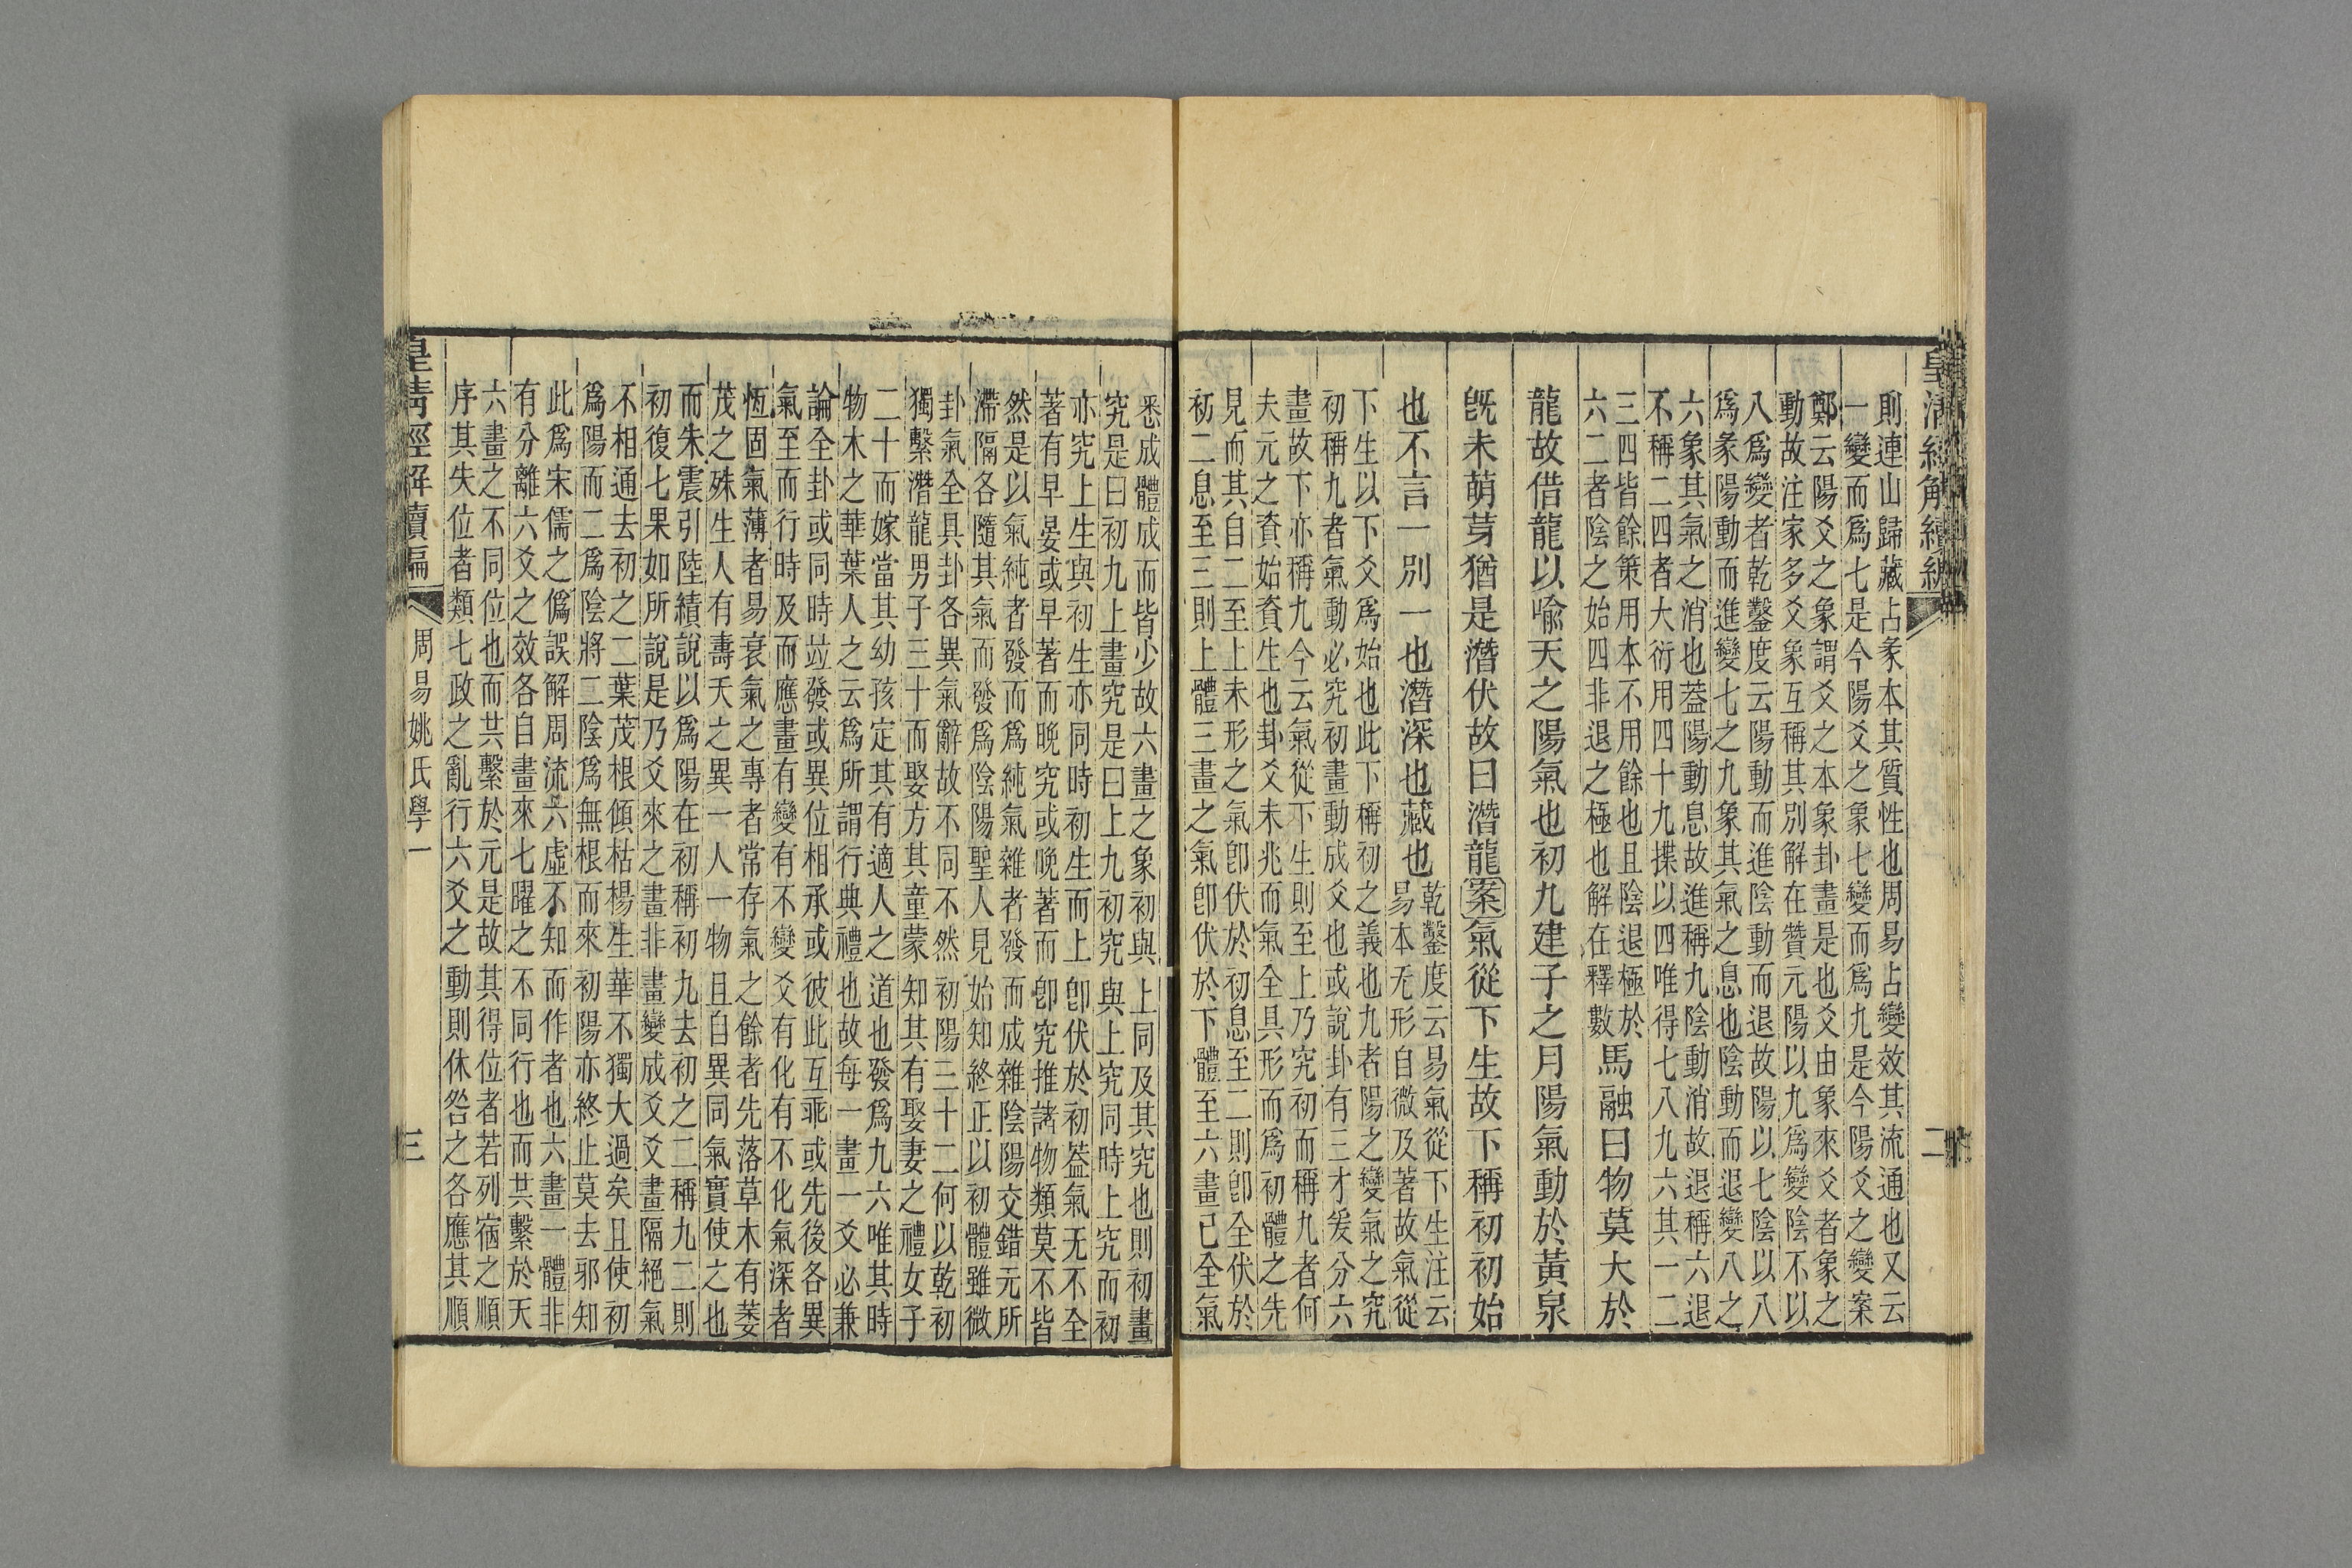 皇清經解續編
二
則連山歸藏占彖本其質性也周易占變效其流通也又云
一變而爲七是今陽爻之象七變而爲九是今陽爻之變案
鄭云陽爻之象謂爻之本象卦畫是也爻由象來爻者象之
動故注家多爻象互稱其別解在贊元陽以九爲變陰不以
八爲變者乾鑿度云陽動而進陰動而退故陽以七陰以八
爲彖陽動而進變七之九象其氣之息也陰動而退變八之
六象其氣之消也葢陽動息故進稱九陰動消故退稱六退
不稱二四者大衍用四十九揲以四唯得七八九六其一二
三四皆餘策用本不用餘也且陰退極於
六二者陰之始四非退之極也解在釋數
馬融曰物莫大於
龍故借龍以喻天之陽氣也初九建子之月陽氣動於黃泉
旣未萌芽猶是潛伏故曰潛龍案氣從下生故下稱初初始
也不言一別一也潛深也藏也
乾鑿度云易氣從下生注云
易本无形自微及著故氣從
下生以下爻爲始也此下稱初之義也九者陽之變氣之究
初稱九者氣動必究初畫動成爻也或說卦有三才爰分六
畫故下亦稱九今云氣從下生則至上乃究初而稱九者何
夫元之資始資生也卦爻未兆而氣全具形而爲初體之先
見而其自二至上未形之氣卽伏於初息至二則卽全伏於
初二息至三則上體三畫之氣卽伏於下體至六畫已全氣
悉成體成而皆少故六畫之象初與上同及其究也則初畫
究是曰初九上畫究是曰上九初究與上究同時上究而初
亦究上生與初生亦同時初生而上卽伏於初葢氣无不全
著有早晏或早著而晚究或晚著而卽究推諸物類莫不皆
然是以氣純者發而爲純氣雜者發而成雜陰陽交錯元所
滯隔各隨其氣而發爲陰陽聖人見始知終正以初體雖微
卦氣全具卦各異氣辭故不同不然初陽三十二何以乾初
獨繫潛龍男子三十而娶方其童蒙知其有娶妻之禮女子
二十而嫁當其幼孩定其有適人之道也發爲九六唯其時
物木之華葉人之云爲所謂行典禮也故每一畫一爻必兼
論全卦或同時竝發或異位相承或彼此互乖或先後各異
氣至而行時及而應畫有變有不變爻有化有不化氣深者
恆固氣薄者易衰氣之專者常存氣之餘者先落草木有萎
茂之殊生人有壽夭之異一人一物且自異同氣實使之也
而朱震引陸績說以爲陽在初稱初九去初之二稱九二則
初復七果如所說是乃爻來之畫非畫變成爻爻畫隔絕氣
不相通去初之二葉茂根傾枯楊生華不獨大過矣且使初
爲陽而二爲陰將二陰爲無根而來初陽亦終止莫去邪知
此爲宋儒之僞誤解周流六虛不知而作者也六畫一體非
有分離六爻之效各自畫來七曜之不同行也而其繫於天
六畫之不同位也而共繫於元是故其得位者若列宿之順
序其失位者類七政之亂行六爻之動則休咎之各應其順
皇清經解續編
周易姚氏學一
三